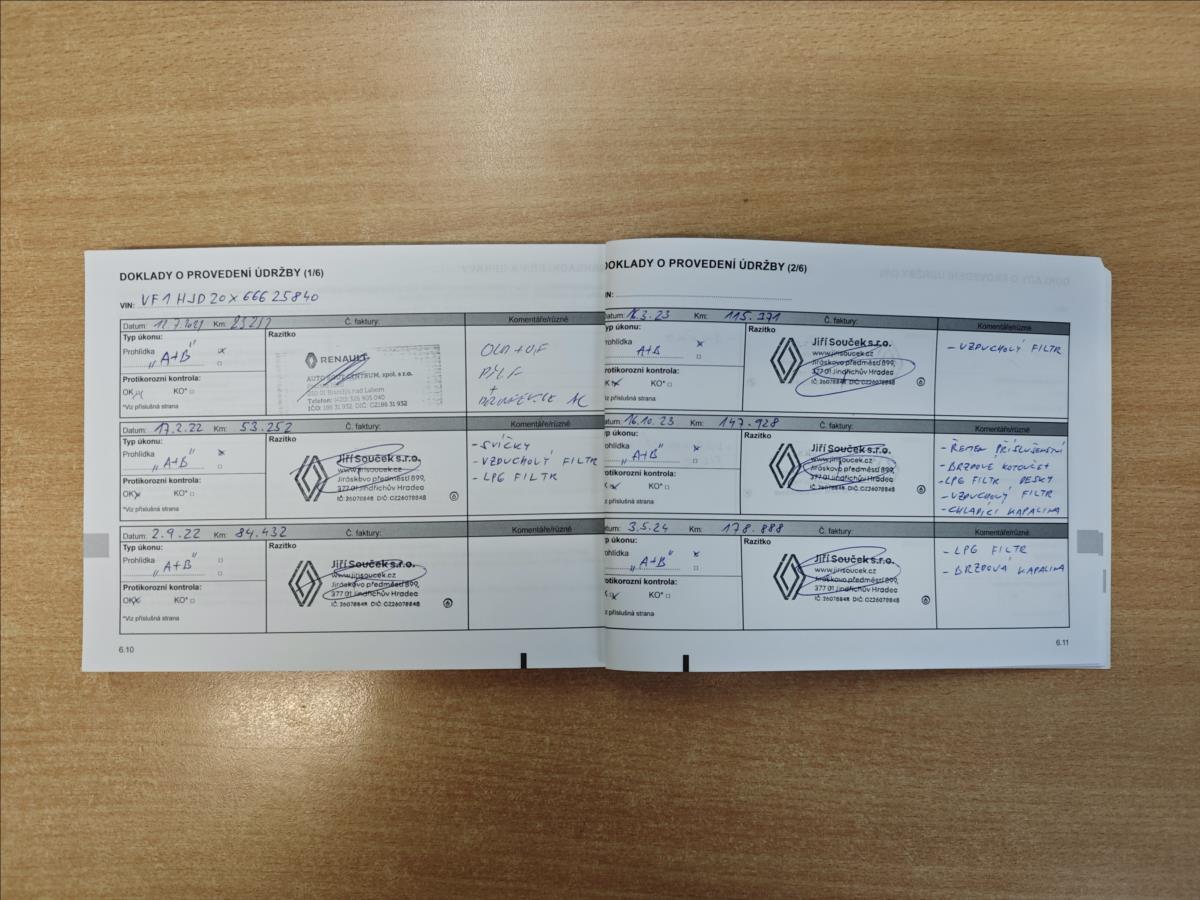 DOKLADY O PROVEDENÍ ÚDRŽBY (1/6)
VIN: VF1HJD20X66625840
Datum: 12.7.2021 Km: Č. faktury: Komentáře/různé
Typ úkonu: Razítko
Prohlídka
"A+B"
Protikorozní kontrola:
OK KO*
*Viz příslušná strana
RENAULT
AUTO CENTRUM, spol. s r.o.
250 01 Brandýs nad Labem
Telefon: (420) 326 905 040
IČO: 186 31 932, DIČ: CZ186 31 932
PYLF
+
Datum: 17.2.22 Km: 53.252 Č. faktury: Komentáře/různé
Typ úkonu: Razítko
Prohlídka
"A+B"
Protikorozní kontrola:
OK KO*
*Viz příslušná strana
Jiří Souček s.r.o.
www.jirisoucek.cz
Jiráskovo předměstí 899,
377 01 Jindřichův Hradec
IČ: 26078848 DIČ: CZ26078848
- SVÍČKY
- VZDUCHOVÝ FILTR
- LPG FILTR
Datum: 2.9.22 Km: 84.432 Č. faktury: Komentáře/různé
Typ úkonu: Razítko
Prohlídka
"A+B"
Protikorozní kontrola:
OK KO*
*Viz příslušná strana
Jiří Souček s.r.o.
www.jirisoucek.cz
Jiráskovo předměstí 899,
377 01 Jindřichův Hradec
IČ: 26078848 DIČ: CZ26078848
6.10
DOKLADY O PROVEDENÍ ÚDRŽBY (2/6)
IN:
atum: 16.3.23 Km: 115.371 Č. faktury: Komentáře/různé
yp úkonu: Razítko
rohlídka
A+B
rotikorozní kontrola:
K KO*
iz příslušná strana
Jiří Souček s.r.o.
www.jirisoucek.cz
Jiráskovo předměstí 899,
377 01 Jindřichův Hradec
IČ: 26078848 DIČ: CZ26078848
- VZDUCHOVÝ FILTR
atum: 16.10.23 Km: 147.928 Č. faktury: Komentáře/různé
yp úkonu: Razítko
rohlídka
"A+B"
rotikorozní kontrola:
K KO*
iz příslušná strana
Jiří Souček s.r.o.
www.jirisoucek.cz
Jiráskovo předměstí 899,
377 01 Jindřichův Hradec
IČ: 26078848 DIČ: CZ26078848
- ŘEMEN PŘÍSLUŠENSTVÍ
- BRZDOVÉ KOTOUČE +
- LPG FILTR DESKY
- VZDUCHOVÝ FILTR
- CHLADÍCÍ KAPALINA
atum: 3.5.24 Km: 178.888 Č. faktury: Komentáře/různé
yp úkonu: Razítko
rohlídka
"A+B"
rotikorozní kontrola:
K KO*
iz příslušná strana
Jiří Souček s.r.o.
www.jirisoucek.cz
Jiráskovo předměstí 899,
377 01 Jindřichův Hradec
IČ: 26078848 DIČ: CZ26078848
- LPG FILTR
- BRZDOVÁ KAPALINA
6.11